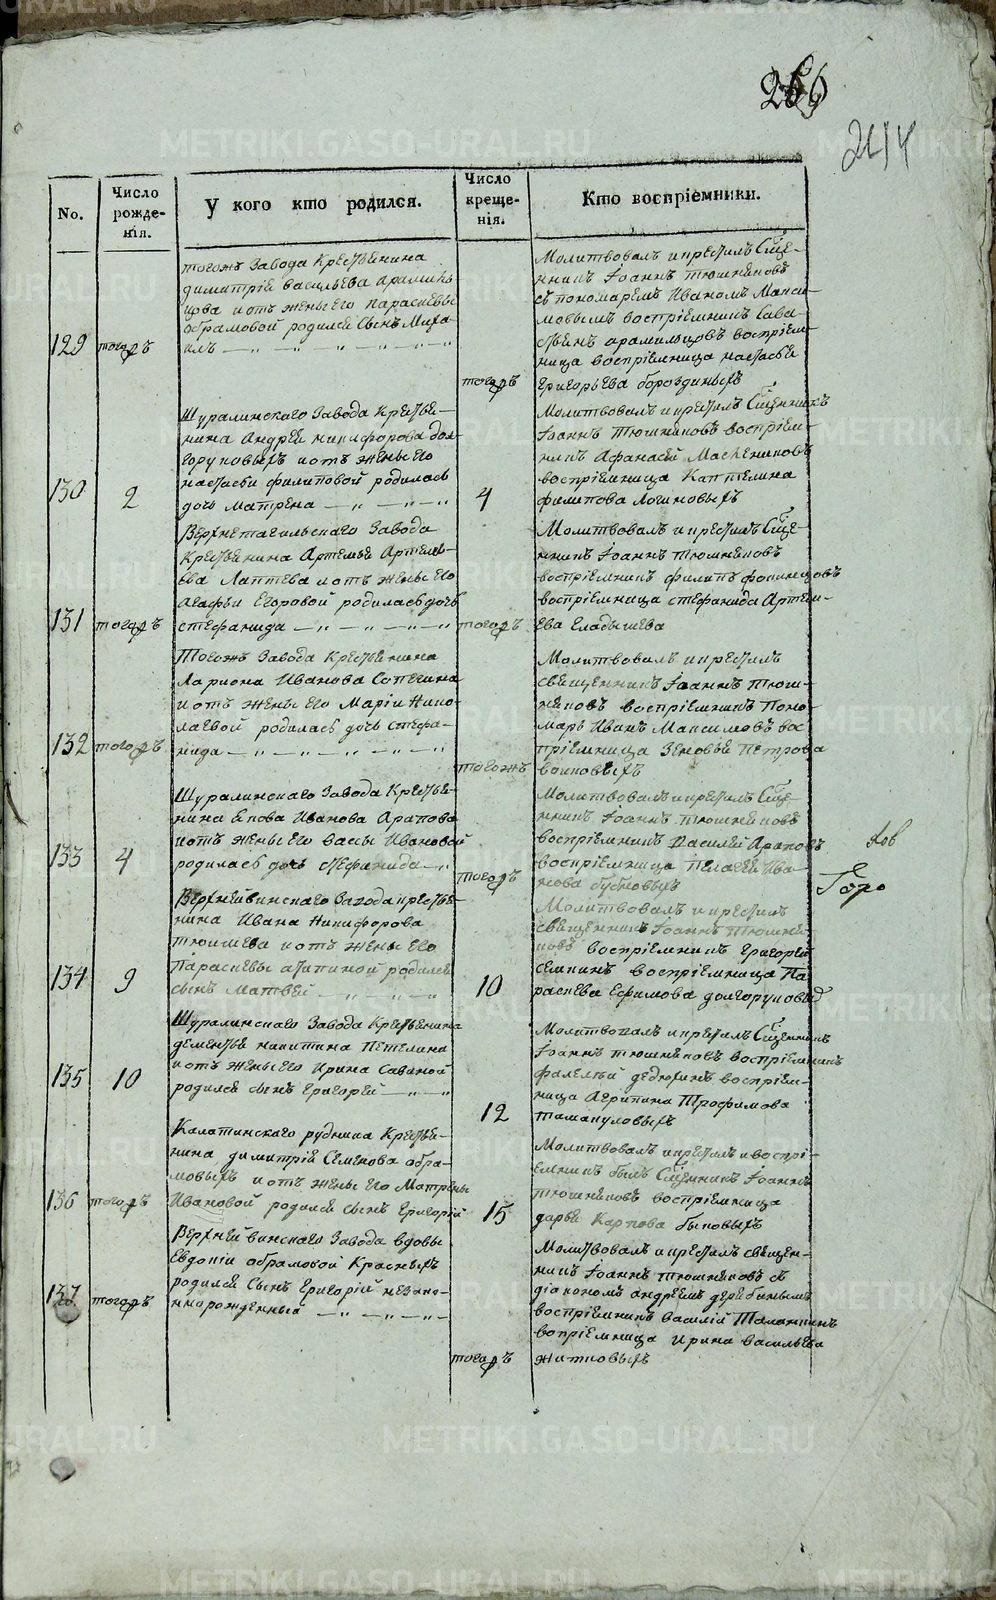 266
214
No.
Число
рожде-
нія.
У кого кто родился.
Число
креще-
нія.
Кто воспріемники.
129
тогожъ
тогожъ Завода Крестьянина
димитрія васильева арамиль
цова и отъ жены его параскевы
абрамовой родился Сынъ Миха-
илъ — „ — „ — „ — „
тогожъ
Молитвовалъ и крестилъ Свяще-
нникъ Іоаннъ тюшняковъ
съ пономаремъ Иваномъ Макси-
мовымъ воспріемникъ Сава-
арамильцовъ воспріем-
ница воспріемница настасья
Григорьева бороздиныхъ
130
2
Шуралинскаго Завода Крестья-
нина Андрея никифорова дол-
горуковыхъ и отъ жены его
настасьи филиповой родилась
дочь матрена — „ — „ — „
4
Молитвовалъ и крестилъ Священникъ
Іоаннъ Тюшняковъ воспріем-
никъ Афанасей Маслениковъ
воспріемница
филипова Логиновыхъ
131
тогожъ
Верхнетагильскаго Завода
Крестьянина Артемья Артемь-
ева Лаптева и отъ жены его
агафьи Егоровой родилась дочь
стефанида — „ — „ — „ — „
тогожъ
Молитвовалъ и крестилъ Свяще-
нникъ Іоаннъ тюшняковъ
воспріемникъ филипъ
воспріемница стефанида Артем-
ева Гладышева
132
тогожъ
Тогожъ Завода Крестьянина
Лариона Иванова Сопегина
и отъ жены его Маріи Нико-
лаевой родилась дочь стефа-
нида — „ — „ — „ — „ — „
тогожъ
Молитвовалъ и крестилъ
священникъ Іоаннъ Тюш-
няковъ воспріемникъ Поно-
марь Иванъ Максимовъ вос
пріемница Зеновья Петрова
воиновыхъ
133
4
Шуралинскаго Завода Крестья-
нина Иванова Арапова
и отъ жены его вассы Ивановой
родилась дочь стефанида — „
тогожъ
Молитвовалъ и крестилъ Свяще-
нникъ Іоаннъ тюшняковъ
воспріемникъ Василей Араповъ
воспріемница Пелагея Ива-
нова бубновыхъ
134
9
Верхнейвинскаго Завода крестья-
нина Ивана Никифорова
тюишева и отъ жены его
Параскевы агапиной родился
сынъ Матвей — „ — „ — „
10
Молитвовалъ и крестилъ
священникъ Іоаннъ тюшня
ковъ воспріемникъ Григорей
семкинъ воспріемница Па-
раскева Ефимова долгоруковыхъ
135
10
Шуралинскаго Завода Крестьянина
дементья никитина Петелина
и отъ жены его Ирина Савиной
родился сынъ Григорей — „ — „
12
Молитвовалъ и крестилъ Священникъ
Іоаннъ тюшняковъ воспріемникъ
фалелѣй дедюхинъ воспріем-
ница Агрипина Трофимова
тамануловыхъ
136
тогожъ
Калатинскаго рудника Крестья-
нина димитрія Семенова абра-
мовыхъ и отъ жены его Матрены
Ивановой родился сынъ Григорій
15
Молитвовалъ и крестилъ и воспрі-
емникъ былъ Священникъ Іоаннъ
тюшняковъ воспріемница
дарья Карпова быковыхъ
137
тогожъ
Верхнейвинскаго Завода вдовы
Евдокіи абрамовой Красныхъ
родился Сынъ Григорій незако-
ннорожденный — „ — „ — „
тогожъ
Молитвовалъ и крестилъ священ-
никъ Іоаннъ тюшняковъ съ
діакономъ андреемъ дерябинымъ
воспріемникъ василій Таланкинъ
вопріемница ирина васильева
житковыхъ
METRIKI.GASO-URAL.RU